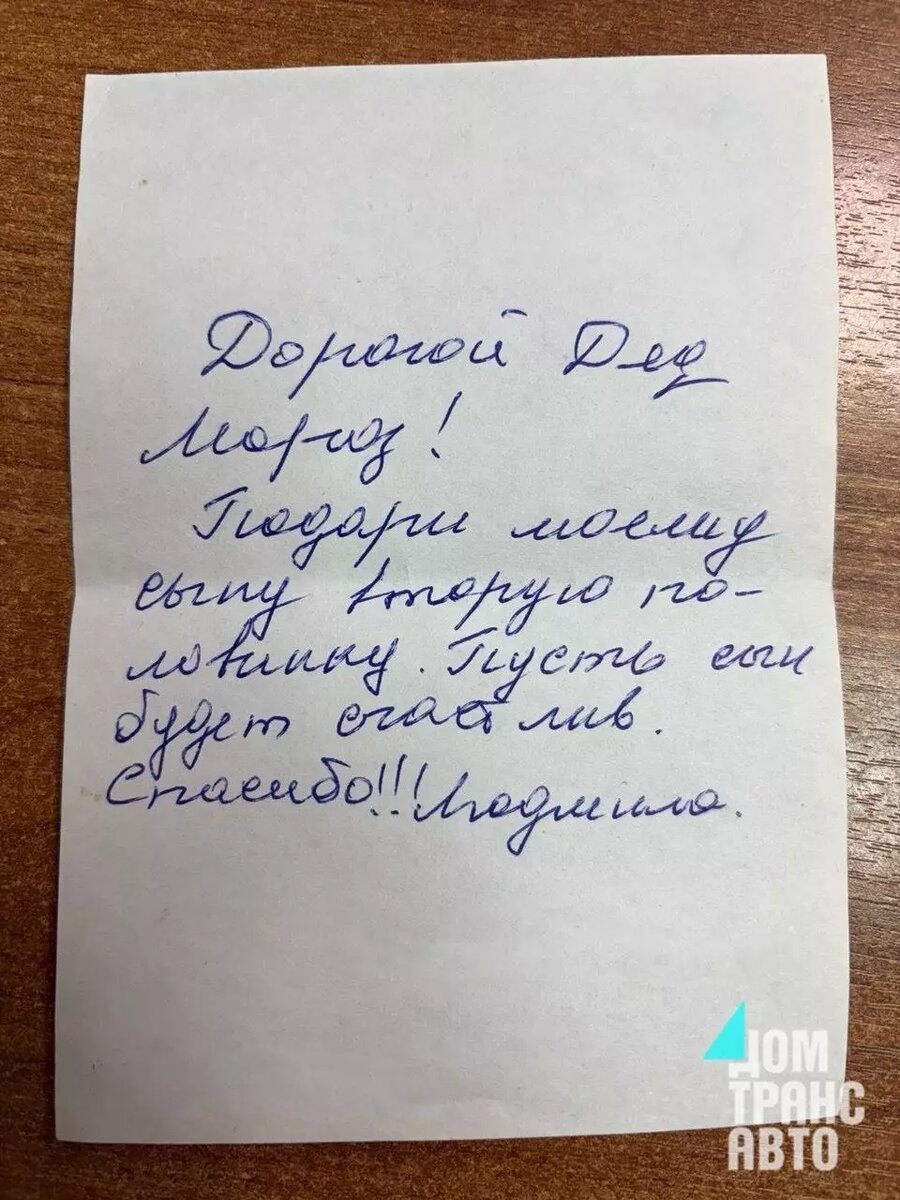 Дорогой Дед
Мороз!
Подари моему
сыну вторую по-
ловинку. Пусть сын
будет счастлив.
Спасибо!!! Людмила.
ДОМ
ТРАНС
АВТО